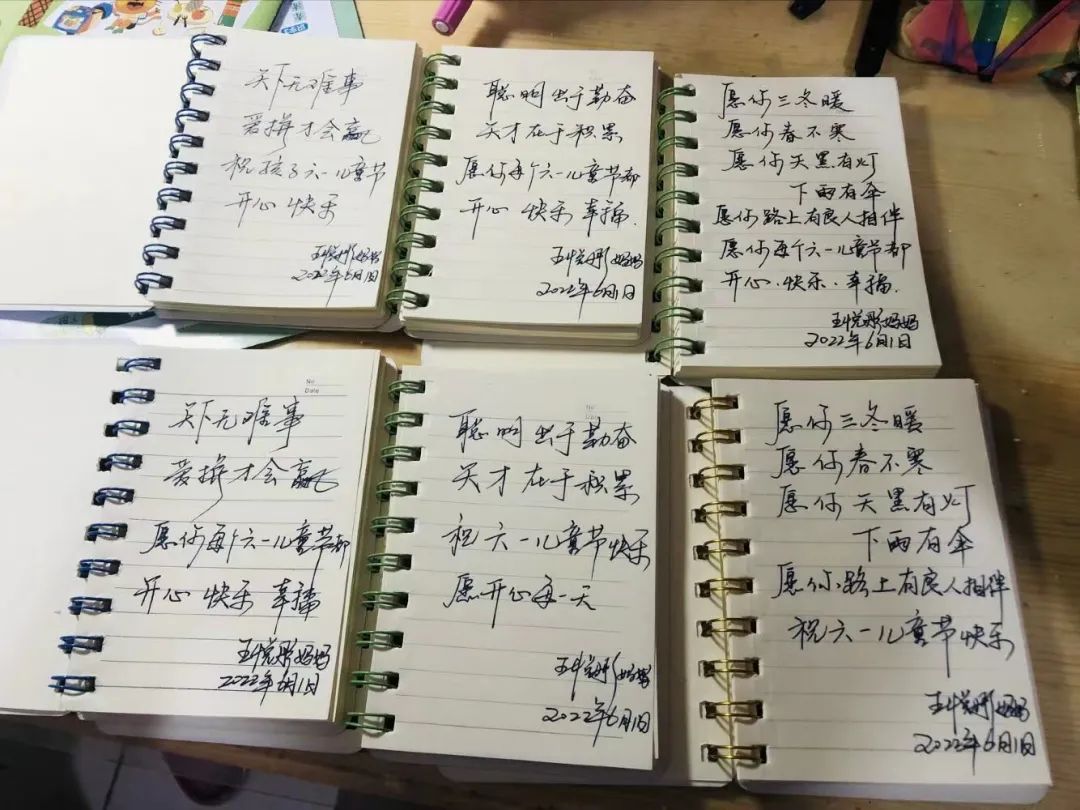 天下无难事
爱拼才会赢
祝孩子六一儿童节
开心 快乐
王悦彤妈妈
2022年6月1日
聪明出于勤奋
天才在于积累
愿你每个六一儿童节都
开心 快乐 幸福.
王悦彤妈妈
2022年6月1日
愿你三冬暖
愿你春不寒
愿你天黑有灯
下雨有伞
愿你路上有良人相伴
愿你每个六一儿童节都
开心·快乐·幸福.
王悦彤妈妈
2022年6月1日
No
Date
天下无难事
爱拼才会赢
愿你每个六一儿童节都
开心 快乐 幸福
王悦彤妈妈
2022年6月1日
聪明出于勤奋
天才在于积累
祝六一儿童节快乐
愿开心每一天
王悦彤妈妈
2022年6月1日
愿你三冬暖
愿你春不寒
愿你天黑有灯
下雨有伞
愿你路上有良人相伴
祝六一儿童节快乐
王悦彤妈妈
2022年6月1日